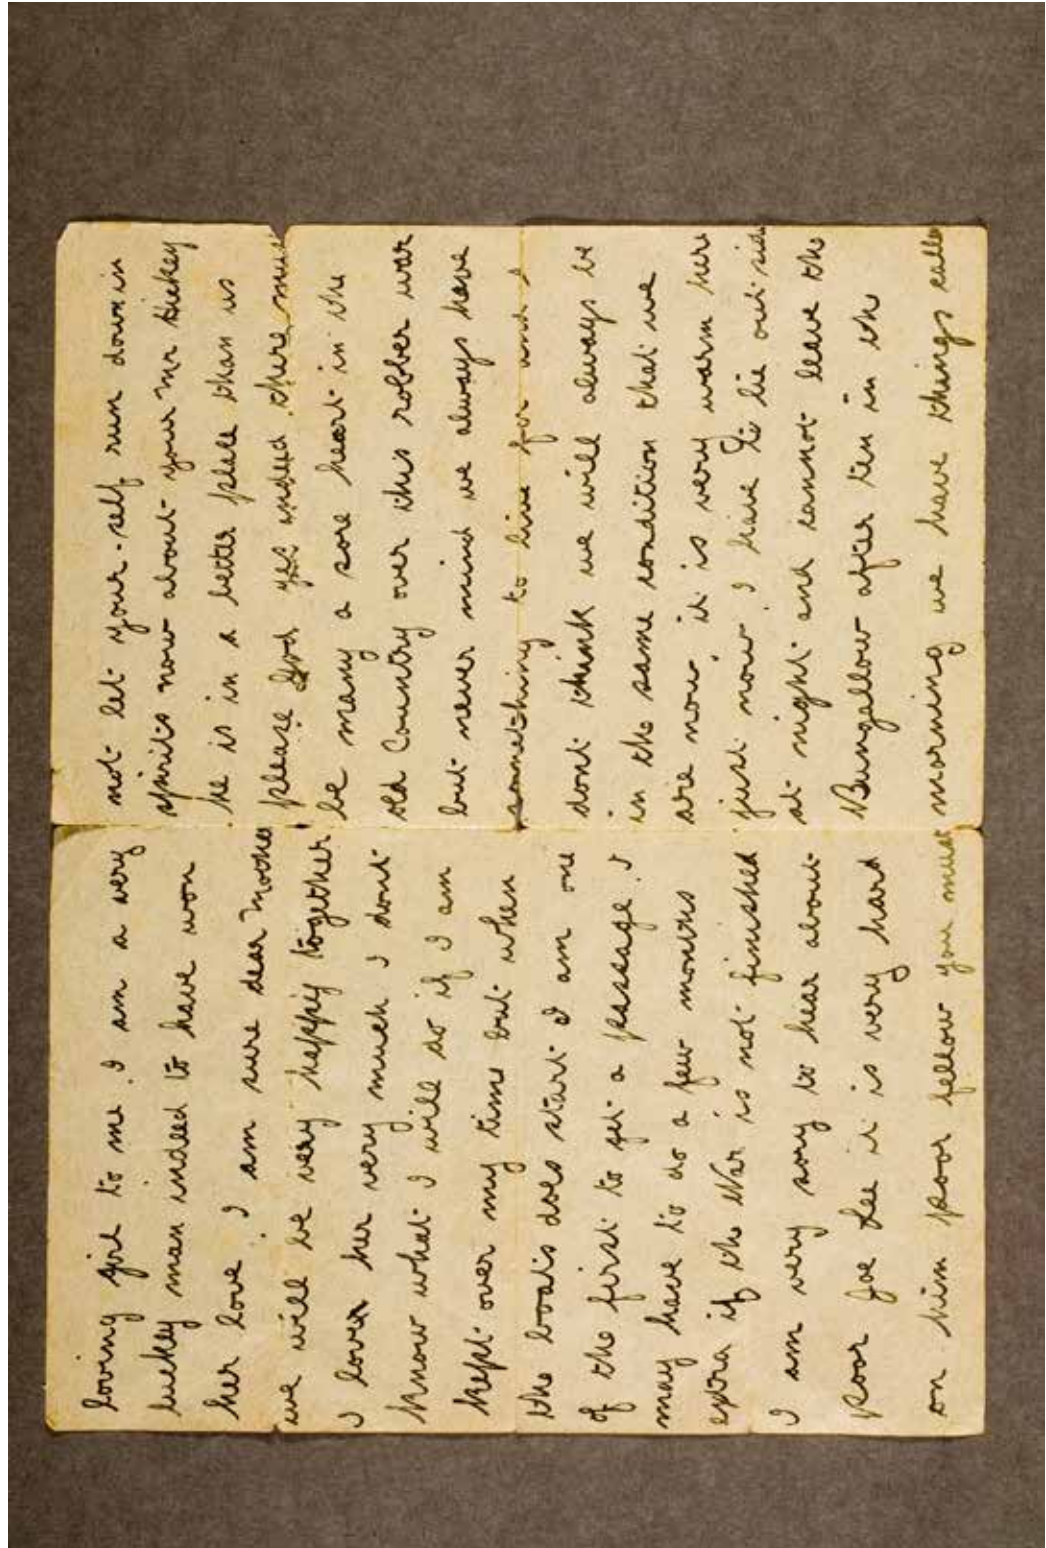 loving girl to me. I am a very
lucky man indeed to have won
her love. I am sure dear Mother
we will be very happy together
I lovex her very much I dont
know what I will do if I am
kept over my time but when
the boats does start I am one
of the first to get a passage. I
may have to do a few months
extra if the War is not finished
I am very sory to hear about
poor Joe Lee it is very hard
on him poor fellow you must
not let your-self run down in
spirits now about your Mr Hickey
he is in a better place than us
please God yes indeed there must
be many a sore heart in the
old Country over this robber war
but never mind we always have
something to live for and I
dont think we will always be
in the same condition that we
are now. it is very warm here
just now. I have to lie out side
at night and cannot leave the
Bungallow after ten in the
morning we have things calle